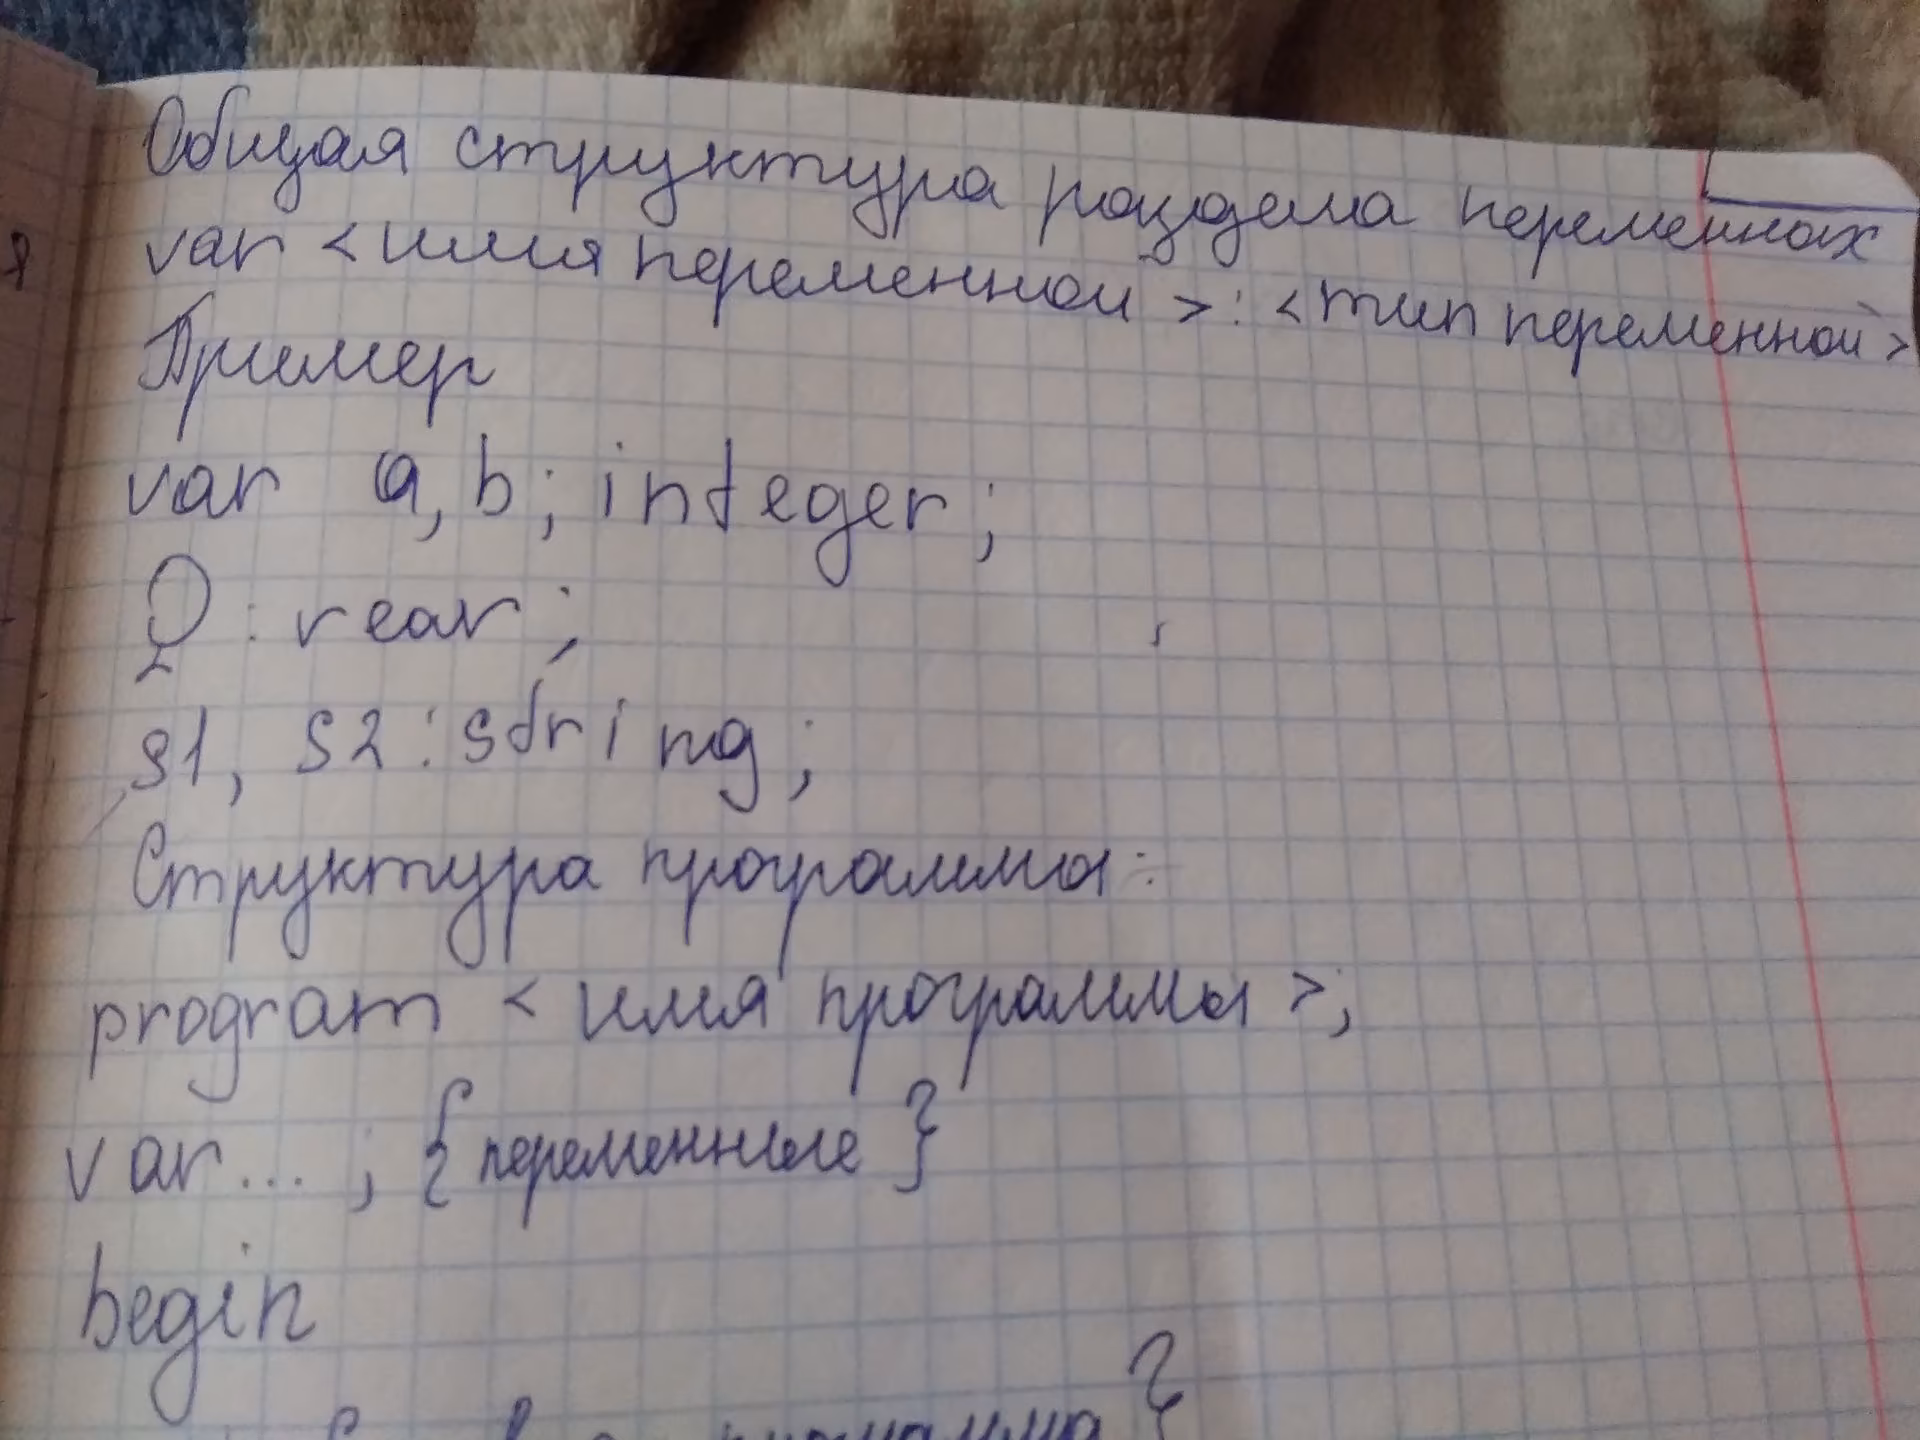 Общая структура раздела переменных
var <имя переменной>: <тип переменной>
Пример
var a, b; integer;
Q: rear;
s1, s2: string;
Структура программы:
program <имя программы>;
var... ; {переменные}
begin
программа}